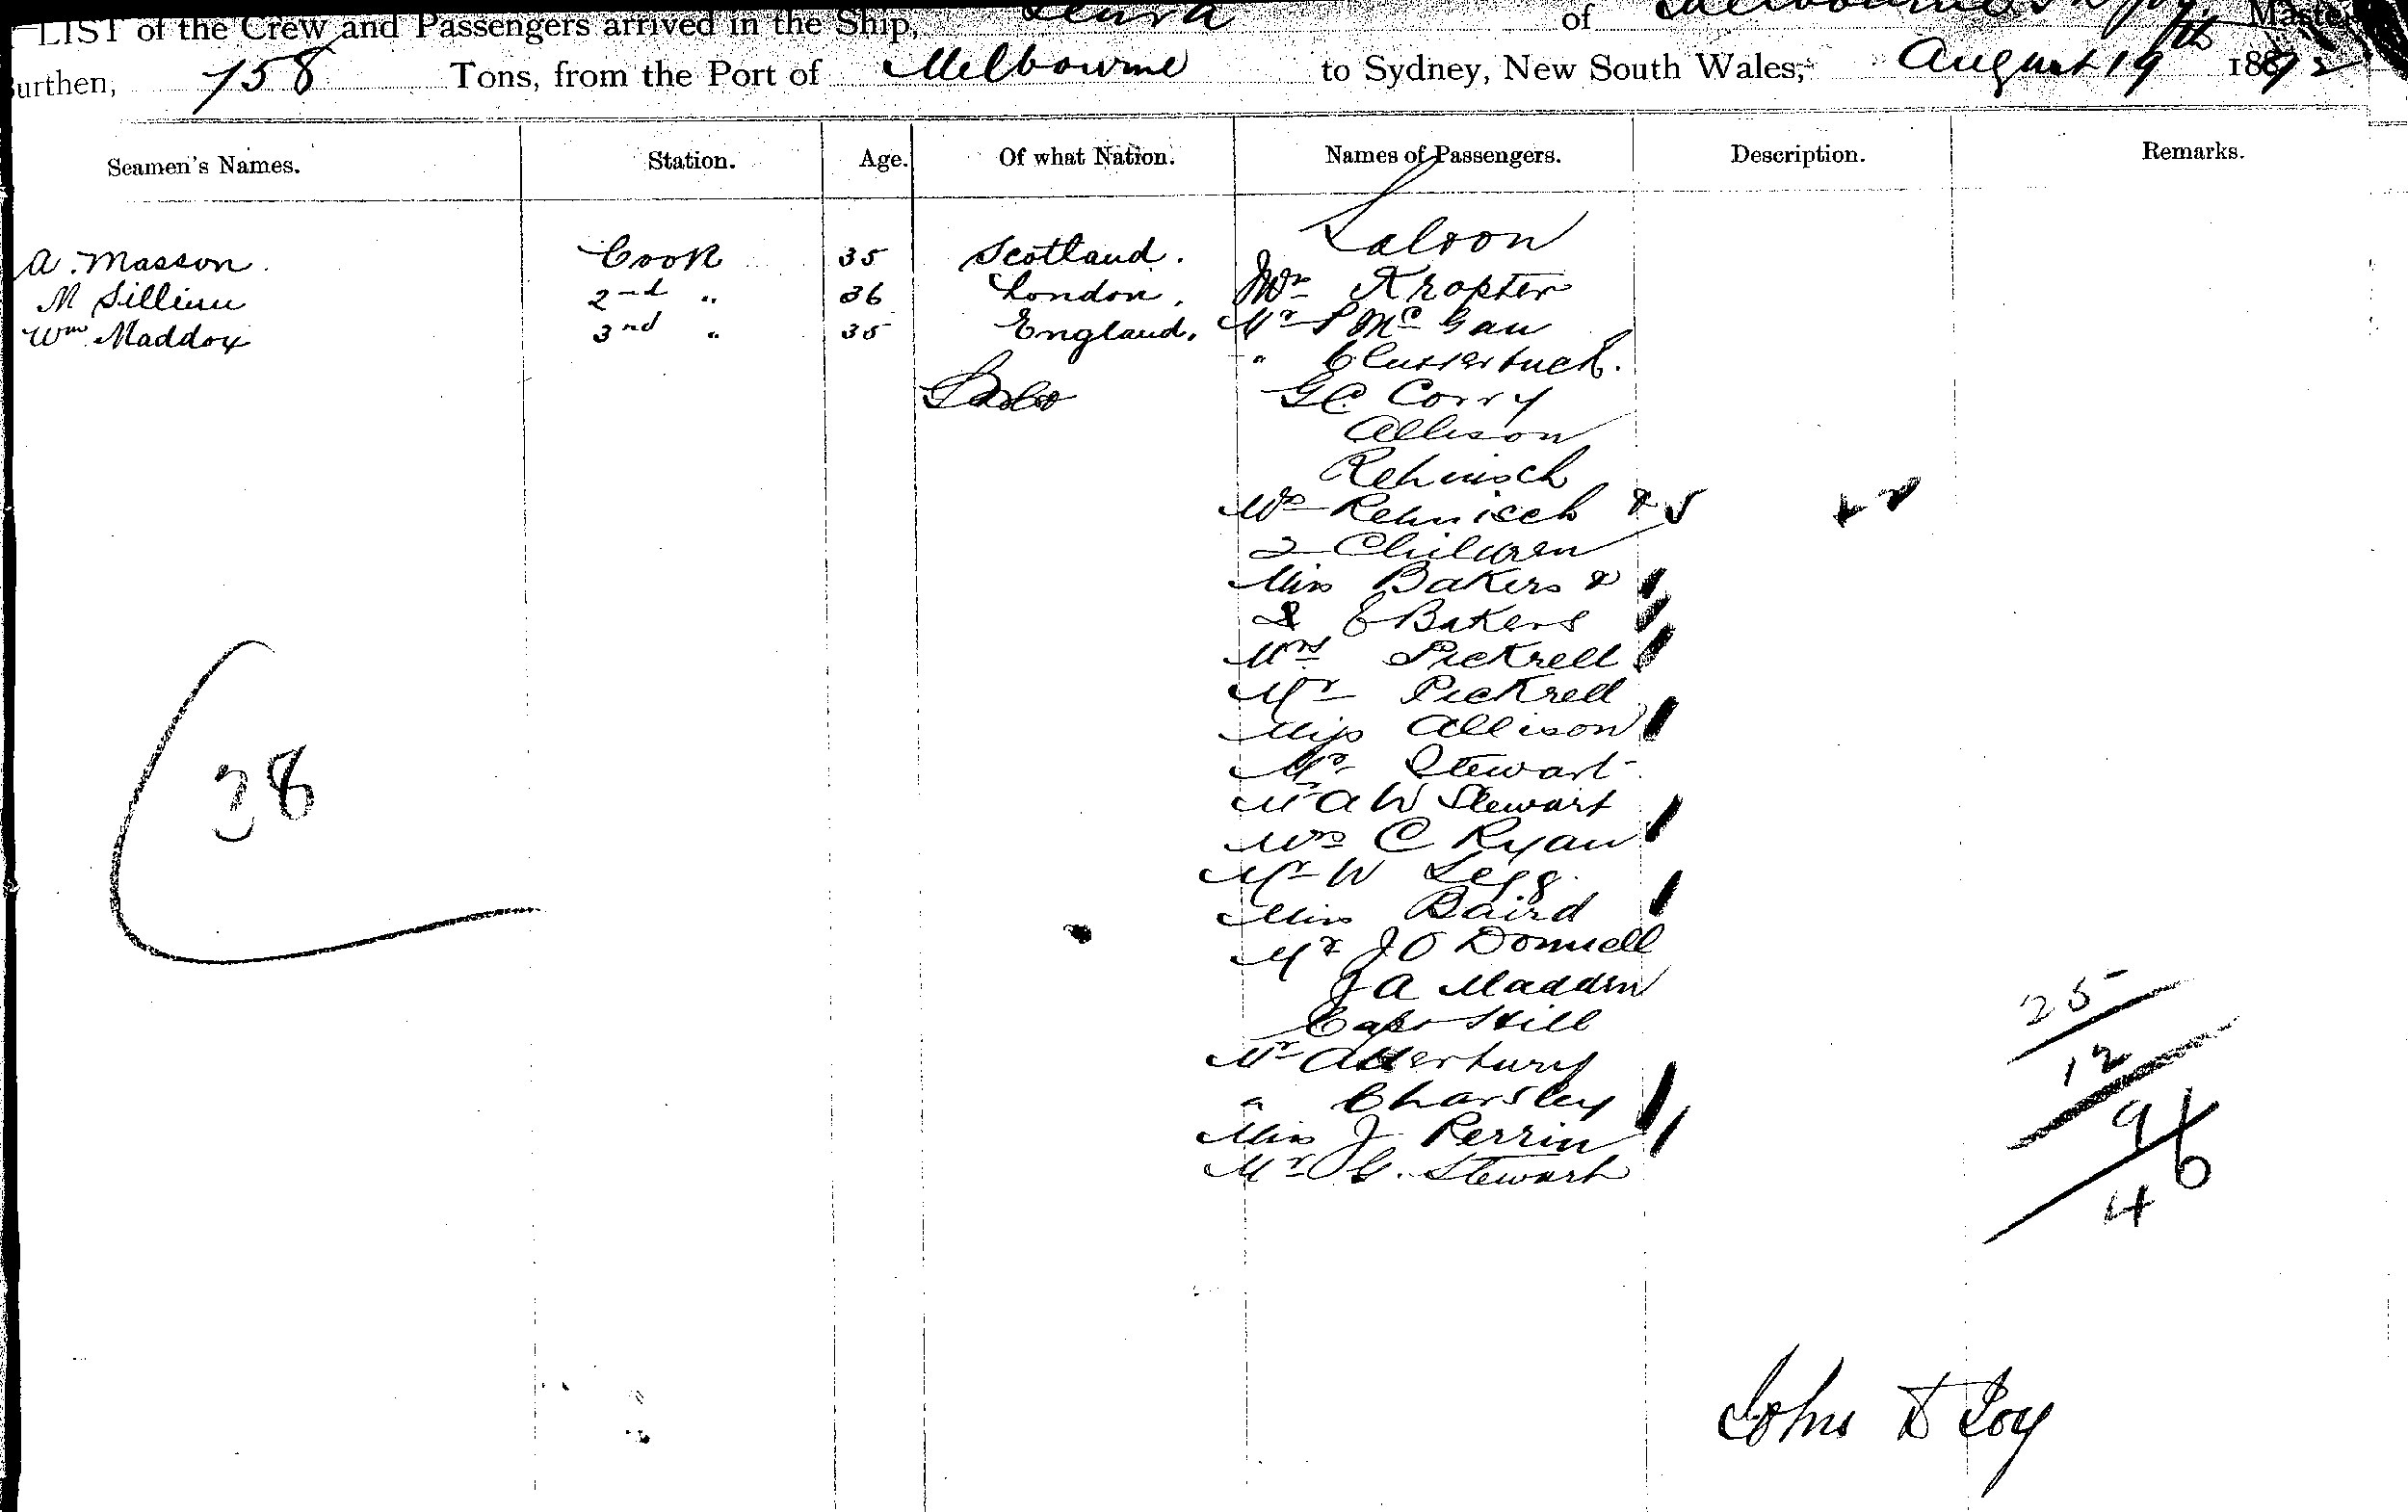 LIST of the Crew and Passengers arrived in the Ship, of Master
Burthen, 758 Tons, from the Port of Melbourne to Sydney, New South Wales, August 19th 1892
Seamen's Names. Station. Age. Of what Nation. Names of Passengers. Description. Remarks.
Saloon
A. Masson Cook 35 Scotland.
M 2nd " 36 London.
Wm Maddox 3rd " 35 England.
Mr Kropter
Mr Mc Gau
" Clutterbuck.
G C Corry
Allison
Rehnisch
Mrs Rehnisch &
2 Children
Miss Bakers &
E Bakers
Mrs Pickrell
Mr Pickrell
Miss Allison
Mr Stewart
Mr A W Stewart
Mrs C Ryan
Mr W Legg
Miss Baird
Mr J O Donnell
J A Madden
Capt Hill
Mr Atterbury
" Charsley
Miss J. Perrin
Mr G. Stewart
38
25
12
96
4
John D Loy